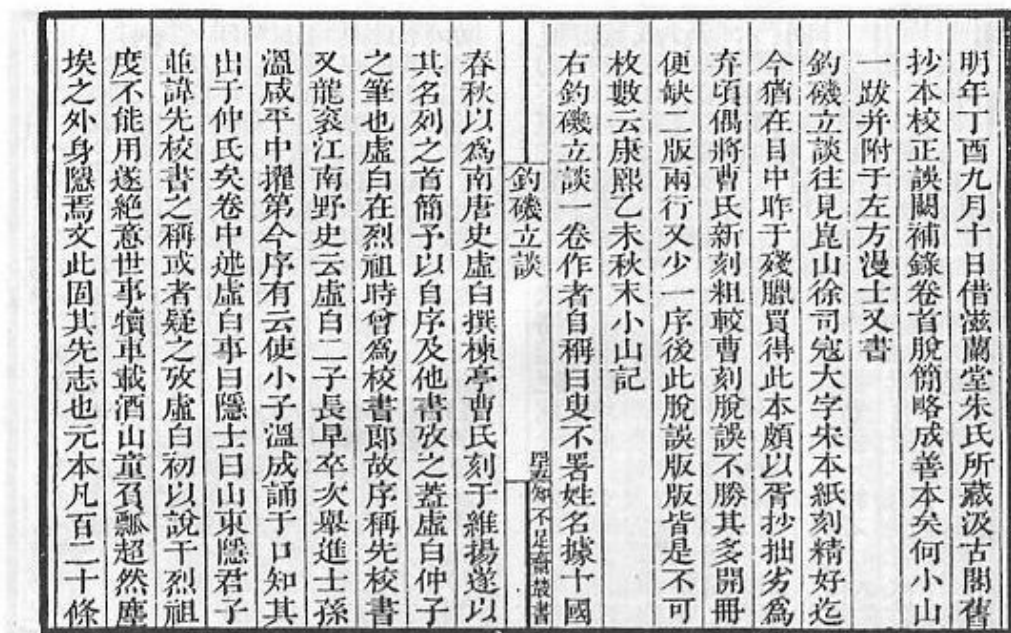 明年丁酉九月十日借滋蘭堂朱氏所藏汲古閣舊
抄本校正誤闕補錄卷首脫簡略成善本矣何小山
一跋并附于左方漫士又書
釣磯立談往見崑山徐司寇大字宋本紙刻精好迄
今猶在目中昨于殘臘買得此本頗以胥抄拙劣為
弃頃偶將曹氏新刻粗較曹刻脫誤不勝其多開冊
便缺二版兩行又少一序後此脫誤版版皆是不可
枚數云康熙乙未秋末小山記
右釣磯立談一卷作者自稱曰叟不署姓名據十國
釣磯立談
知不足齋叢書
春秋以爲南唐史虛白撰楝亭曹氏刻于維揚遂以
其名列之首簡予以自序及他書攷之蓋虛白仲子
之筆也虛白在烈祖時曾爲校書郎故序稱先校書
又龍袞江南野史云虛白二子長早卒次舉進士孫
溫咸平中擢第今序有云使小子溫成誦于口知其
出于仲氏矣卷中述虛白事曰隱士曰山東隱君子
並諱先校書之稱或者疑之攷虛白初以說干烈祖
度不能用遂絕意世事犢車載酒山童負瓢超然塵
埃之外身隱焉文此固其先志也元本凡百二十條